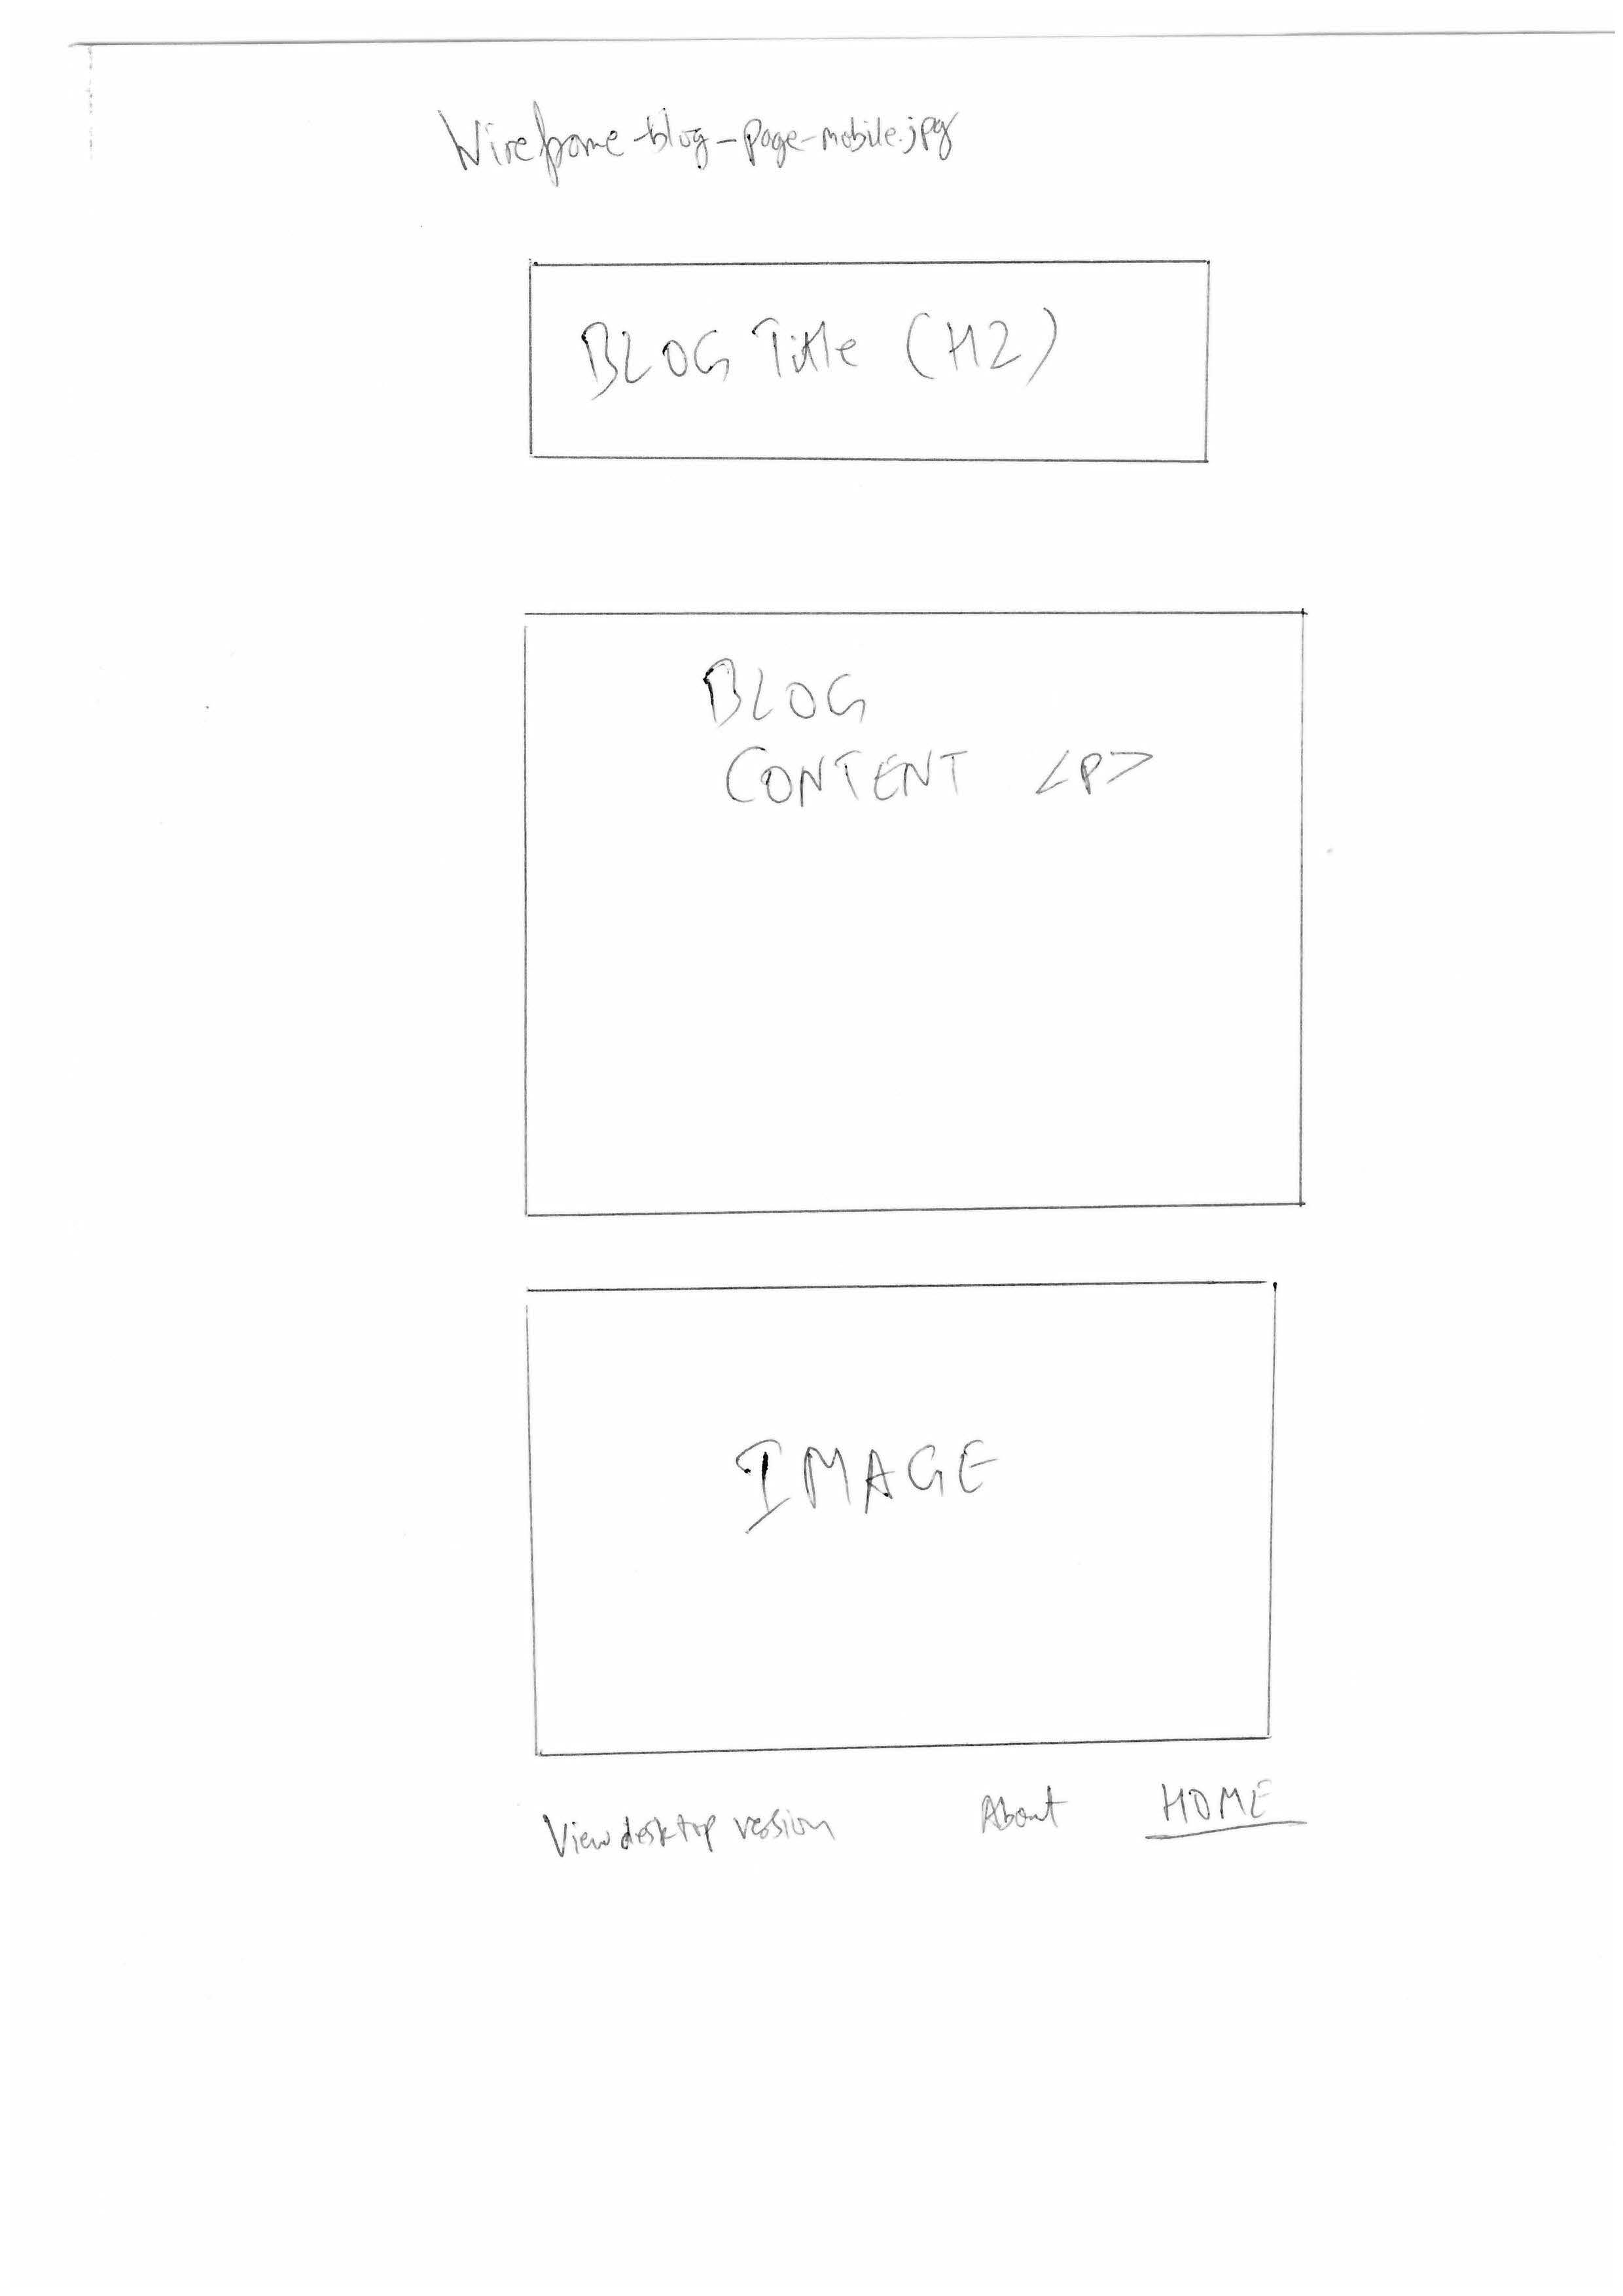 Wireframe-blog-page-mobile.jpg
BLOG Title (H2)
BLOG
CONTENT <P>
IMAGE
View desktop version About HOME